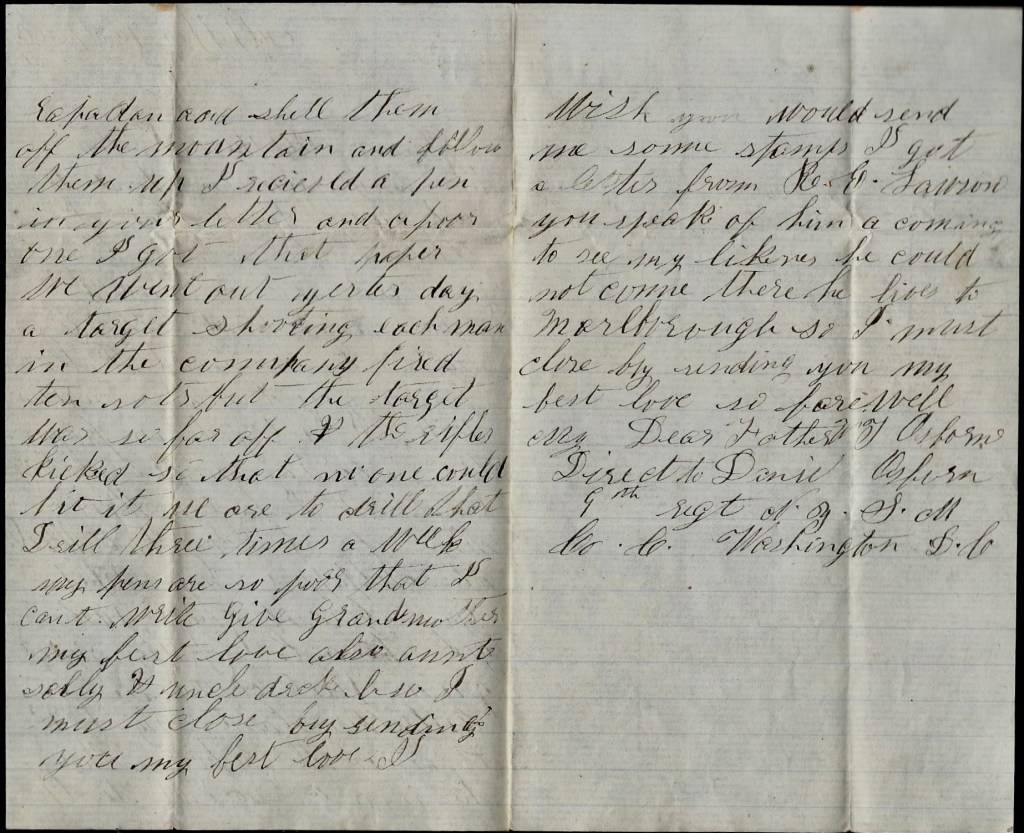 Rapadan and shell them
off the mountain and follow
them up I recieved a pen
in your letter and a poor
one I got that paper
We Went out yesterday
a target shooting each man
in the company fired
ten but the target
Was so far off & the rifles
kicked so that no one could
hit it we are to drill that
Drill three times a Week
my pens are so poor that I
cant write Give Grandmother
my best love also aunt
Sally & uncle so I
must close buy sending
you my best love I
Wish you would send
me some stamps I got
a letter from R. E. Lawson
you speak of him a coming
to see my likenes he could
not come there he lives to
Marlborough so I must
close by sending you my
best love so farewell
my Dear Father Osborn
Direct to Daniel Osborn
9th regt N. Y. S. M
Co. C. Washington D. C